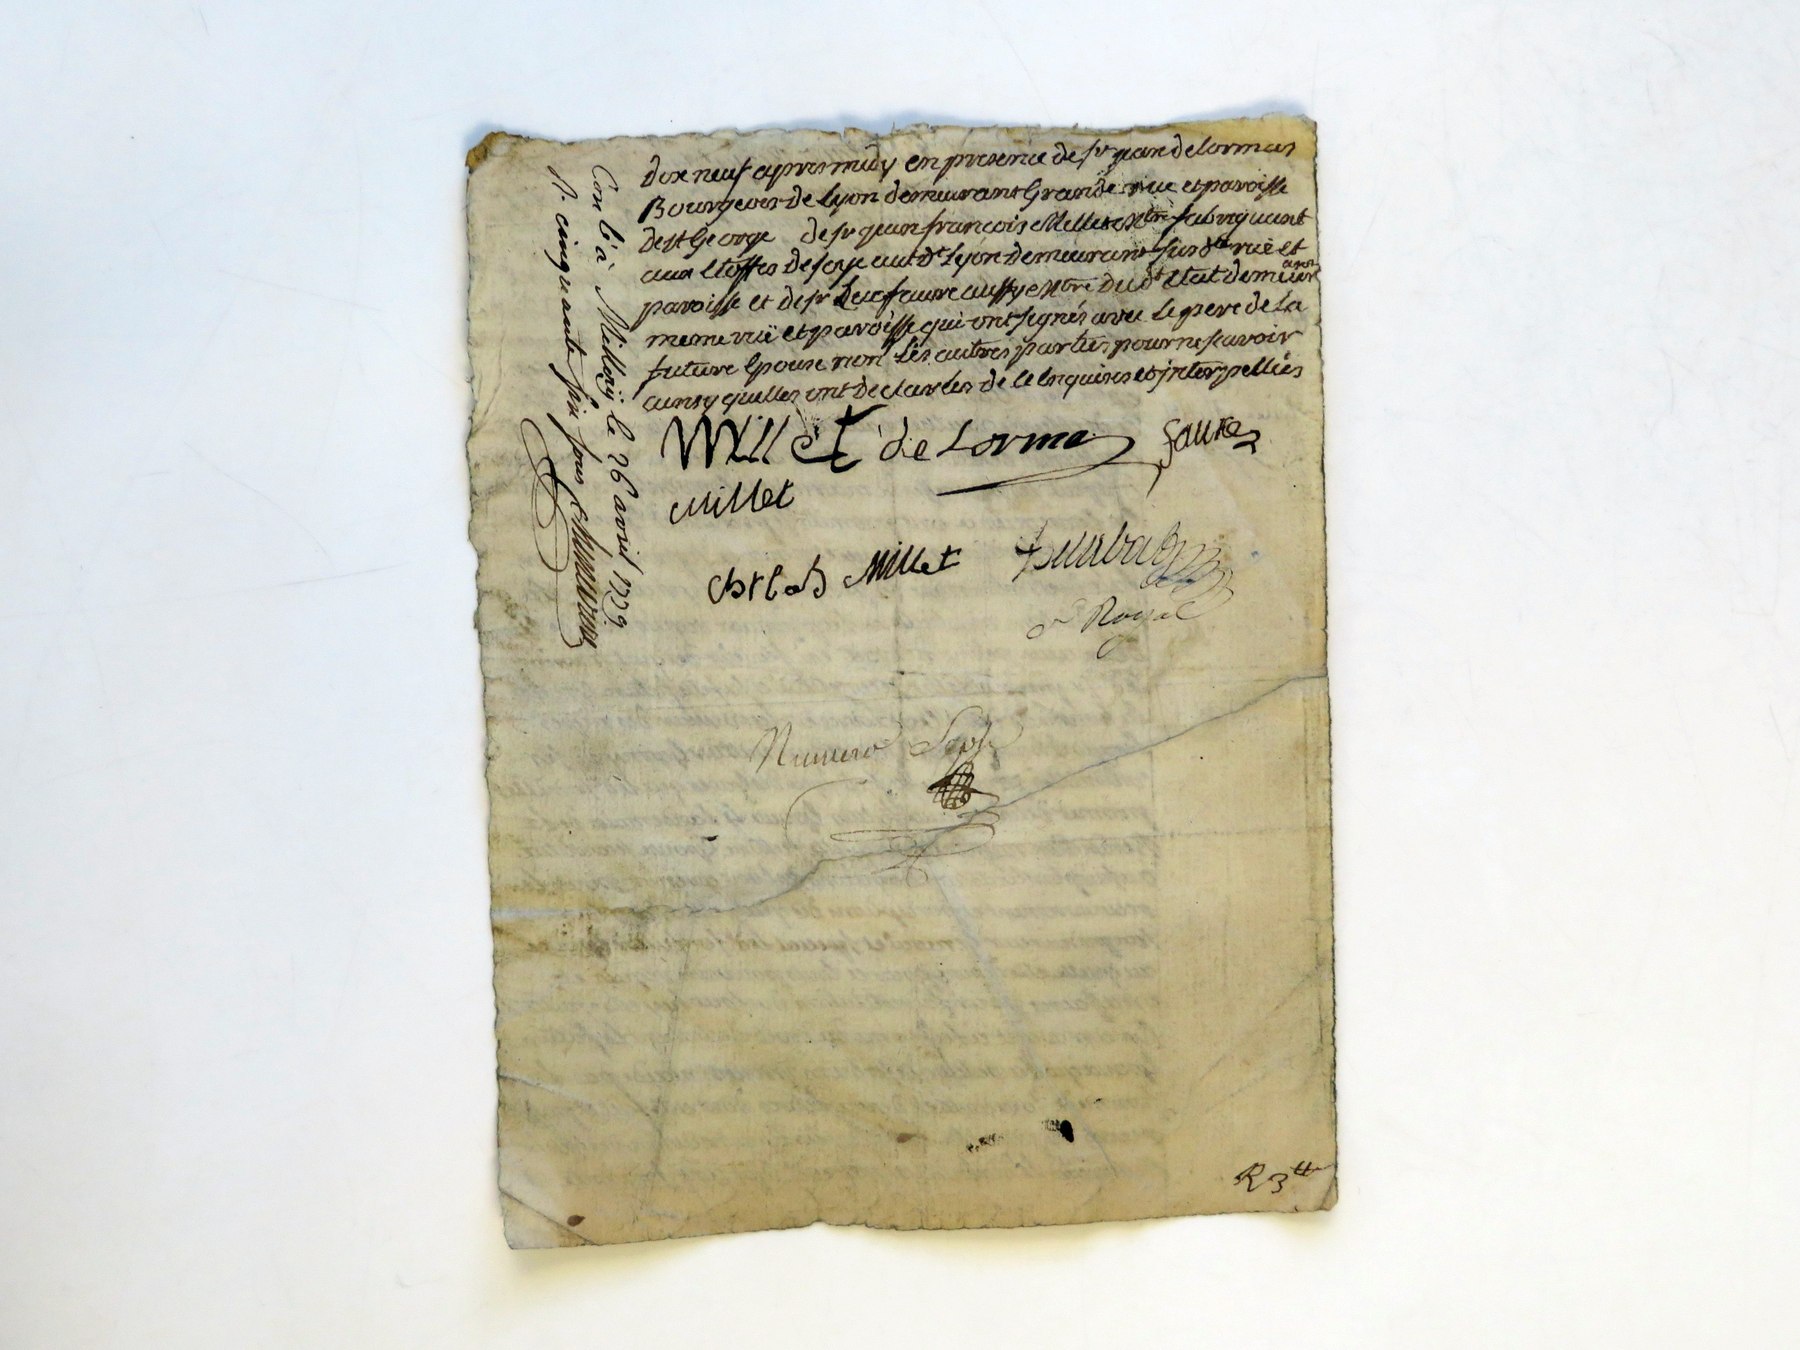 dixneuf apres midy en presence de sr jean delormas
Bourgeois de Lyon demeurant Grande rue et paroisse
de st George de sr jean francois Millet Mtre fabriquant
aux Etoffes de soye aud.t Lyon demeurant susd.te rue et
paroisse et de sr Luc faure aussy Mtre dud.t Etat demeurant
meme rue et paroisse qui ont signés avec le pere de la
future Epouse non Les autres parties pour ne scavoir
ainsy quelles ont declarées de ce Enquises et jnterpellées
Millet de Lorme faure
Millet
Millet
Royal
Numero Sept
R 3 tt
Con.lé à le 26 avril 1739
R. cinquante six sous